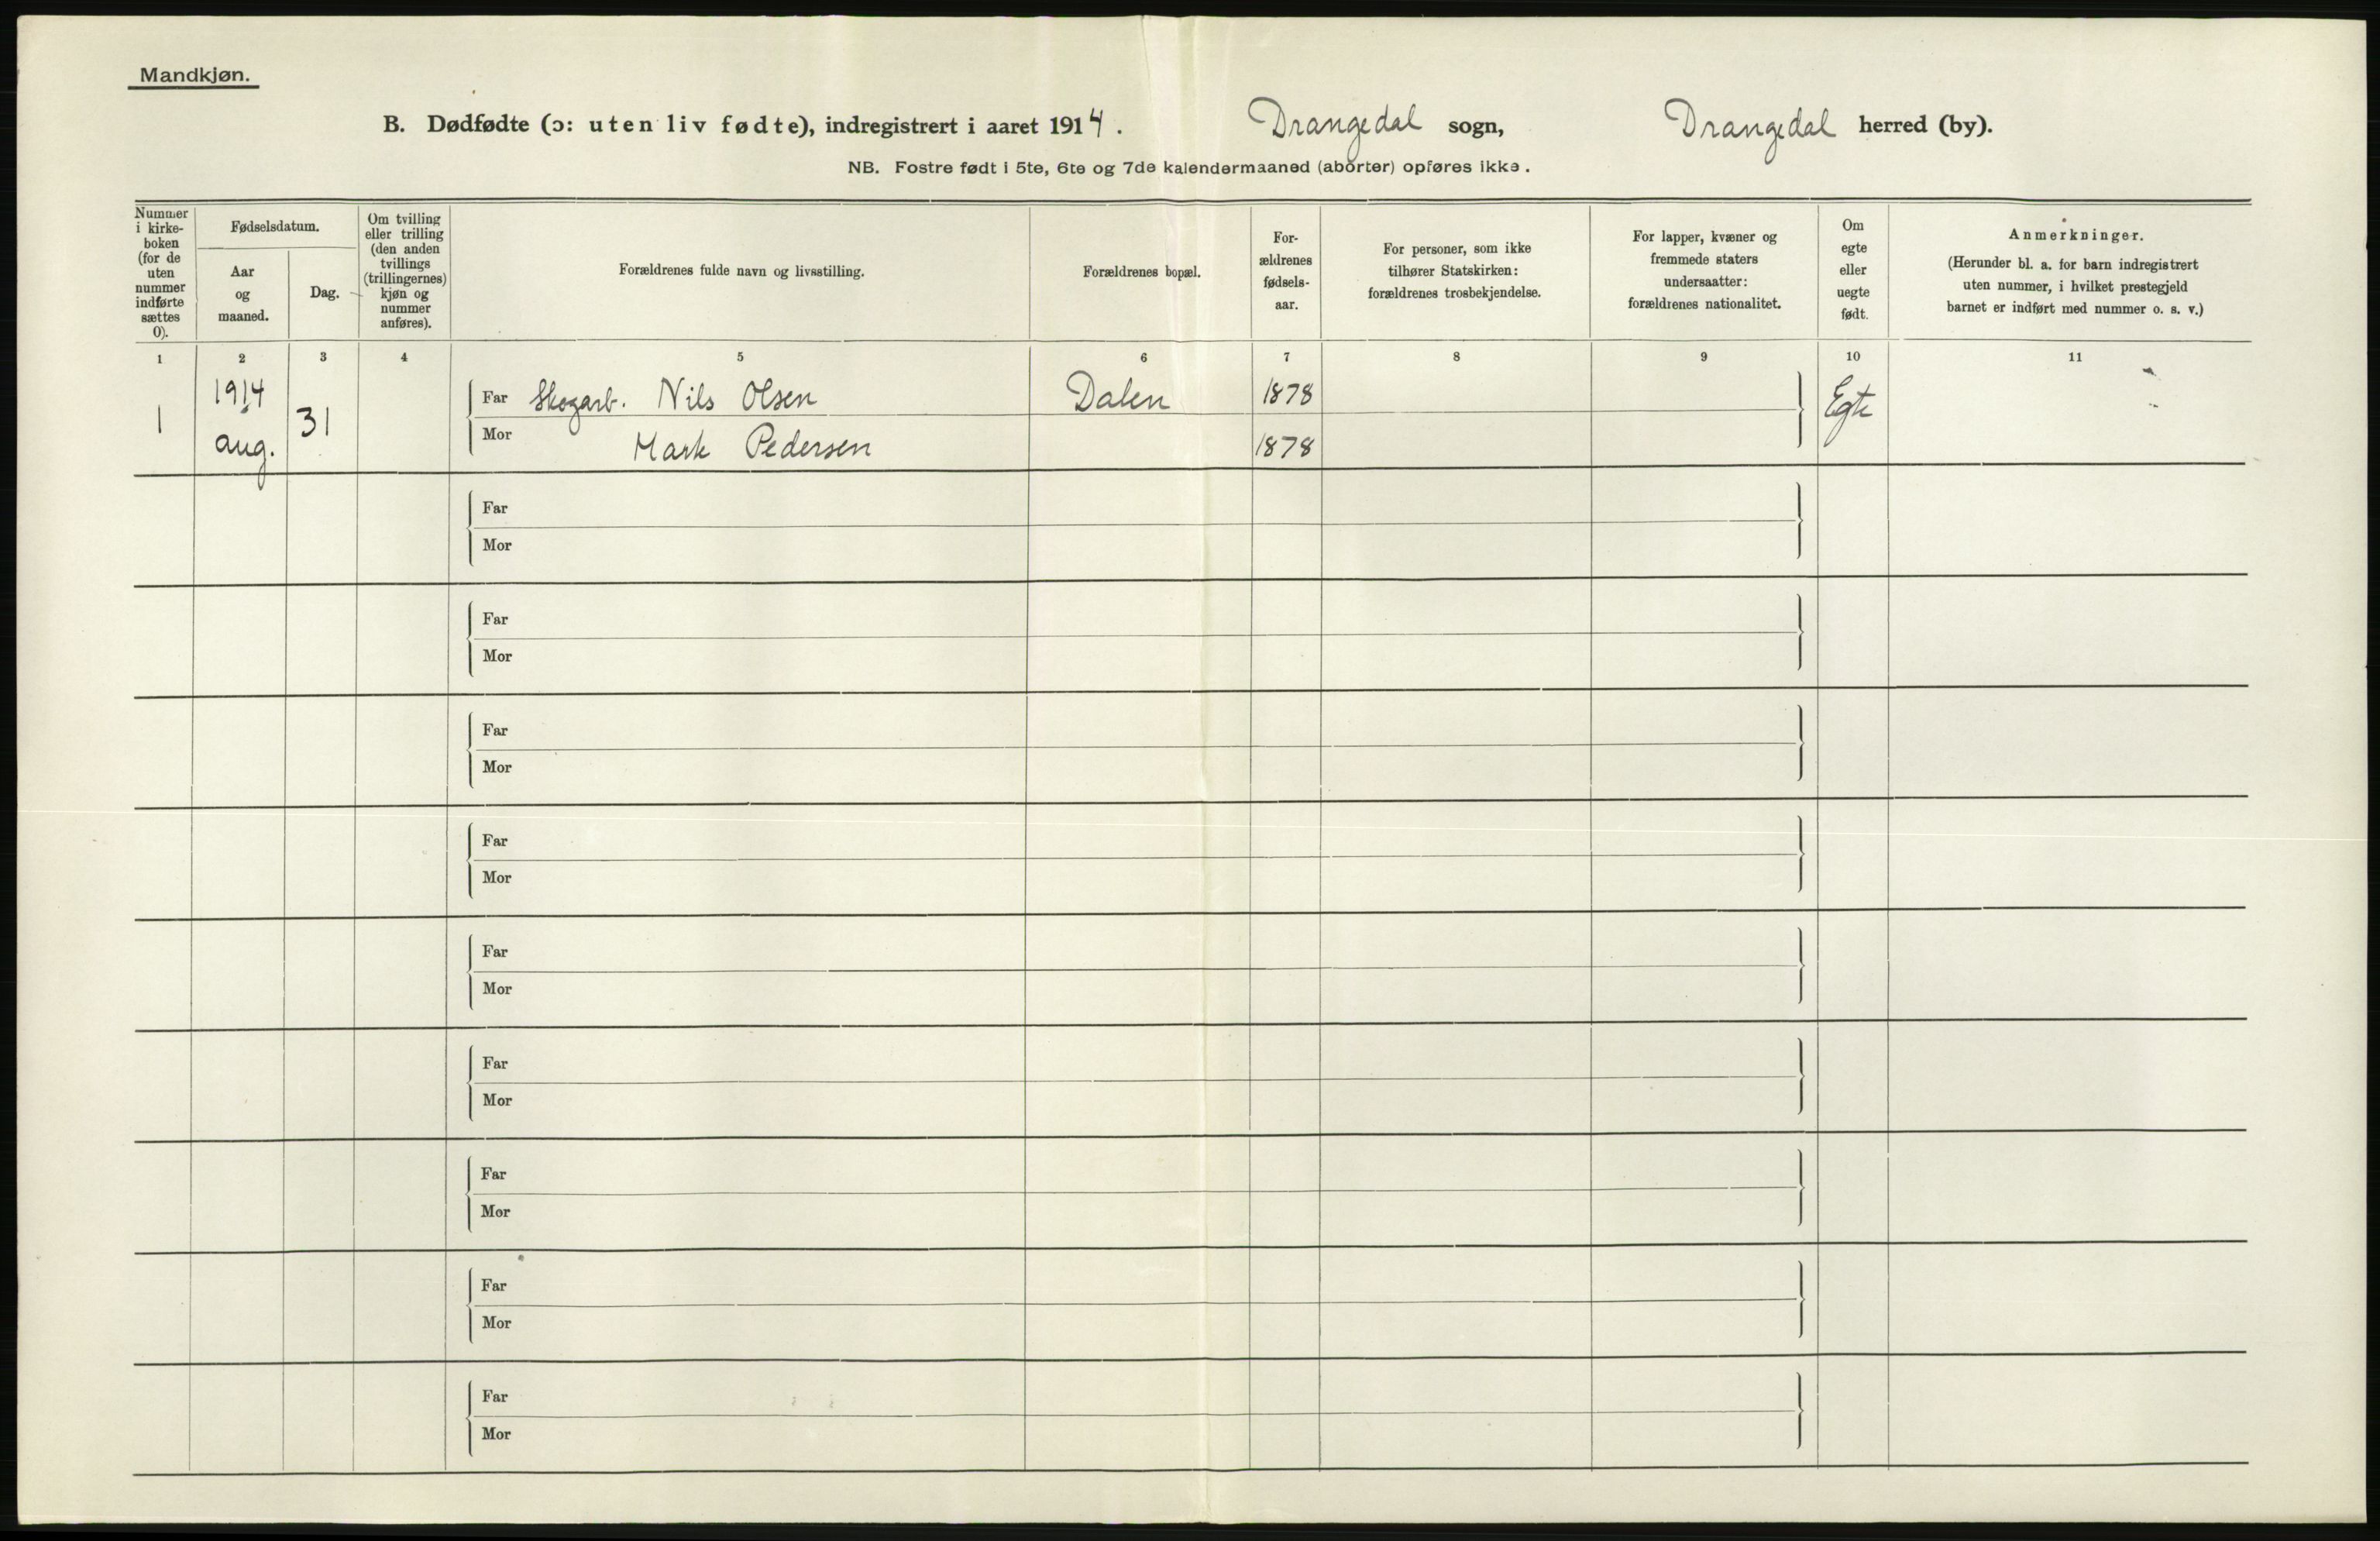 Mandkjøn.
B. Dødfødte (ɔ: uten liv fødte), indregistrert i aaret 1914. Drangedal sogn, Drangedal herred (by).
NB. Fostre født i 5te, 6te og 7de kalendermaaned (aborter) opføres ikke.
Nummer
i kirke-
boken
(for de
uten
nummer
indførte
sættes
0).
Fødselsdatum.
Aar
og
maaned.
Dag.
Om tvilling
eller trilling
(den anden
tvillings
(trillingernes)
kjøn og
nummer
anføres).
Forældrenes fulde navn og livsstilling.
Forældrenes bopæl.
For-
ældrenes
fødsels-
aar.
For personer, som ikke
tilhører Statskirken:
forældrenes trosbekjendelse.
For lapper, kvæner og
fremmede staters
undersaatter:
forældrenes nationalitet.
Om
egte
eller
uegte
født.
Anmerkninger.
(Herunder bl. a. for barn indregistrert
uten nummer, i hvilket prestegjeld
barnet er indført med nummer o. s. v.)
1 2 3 4 5 6 7 8 9 10 11
1 1914 aug. 31
Far Skogarb. Nils Olsen Dalen 1878 Egte
Mor Pedersen 1878
Far
Mor
Far
Mor
Far
Mor
Far
Mor
Far
Mor
Far
Mor
Far
Mor
Far
Mor
Far
Mor